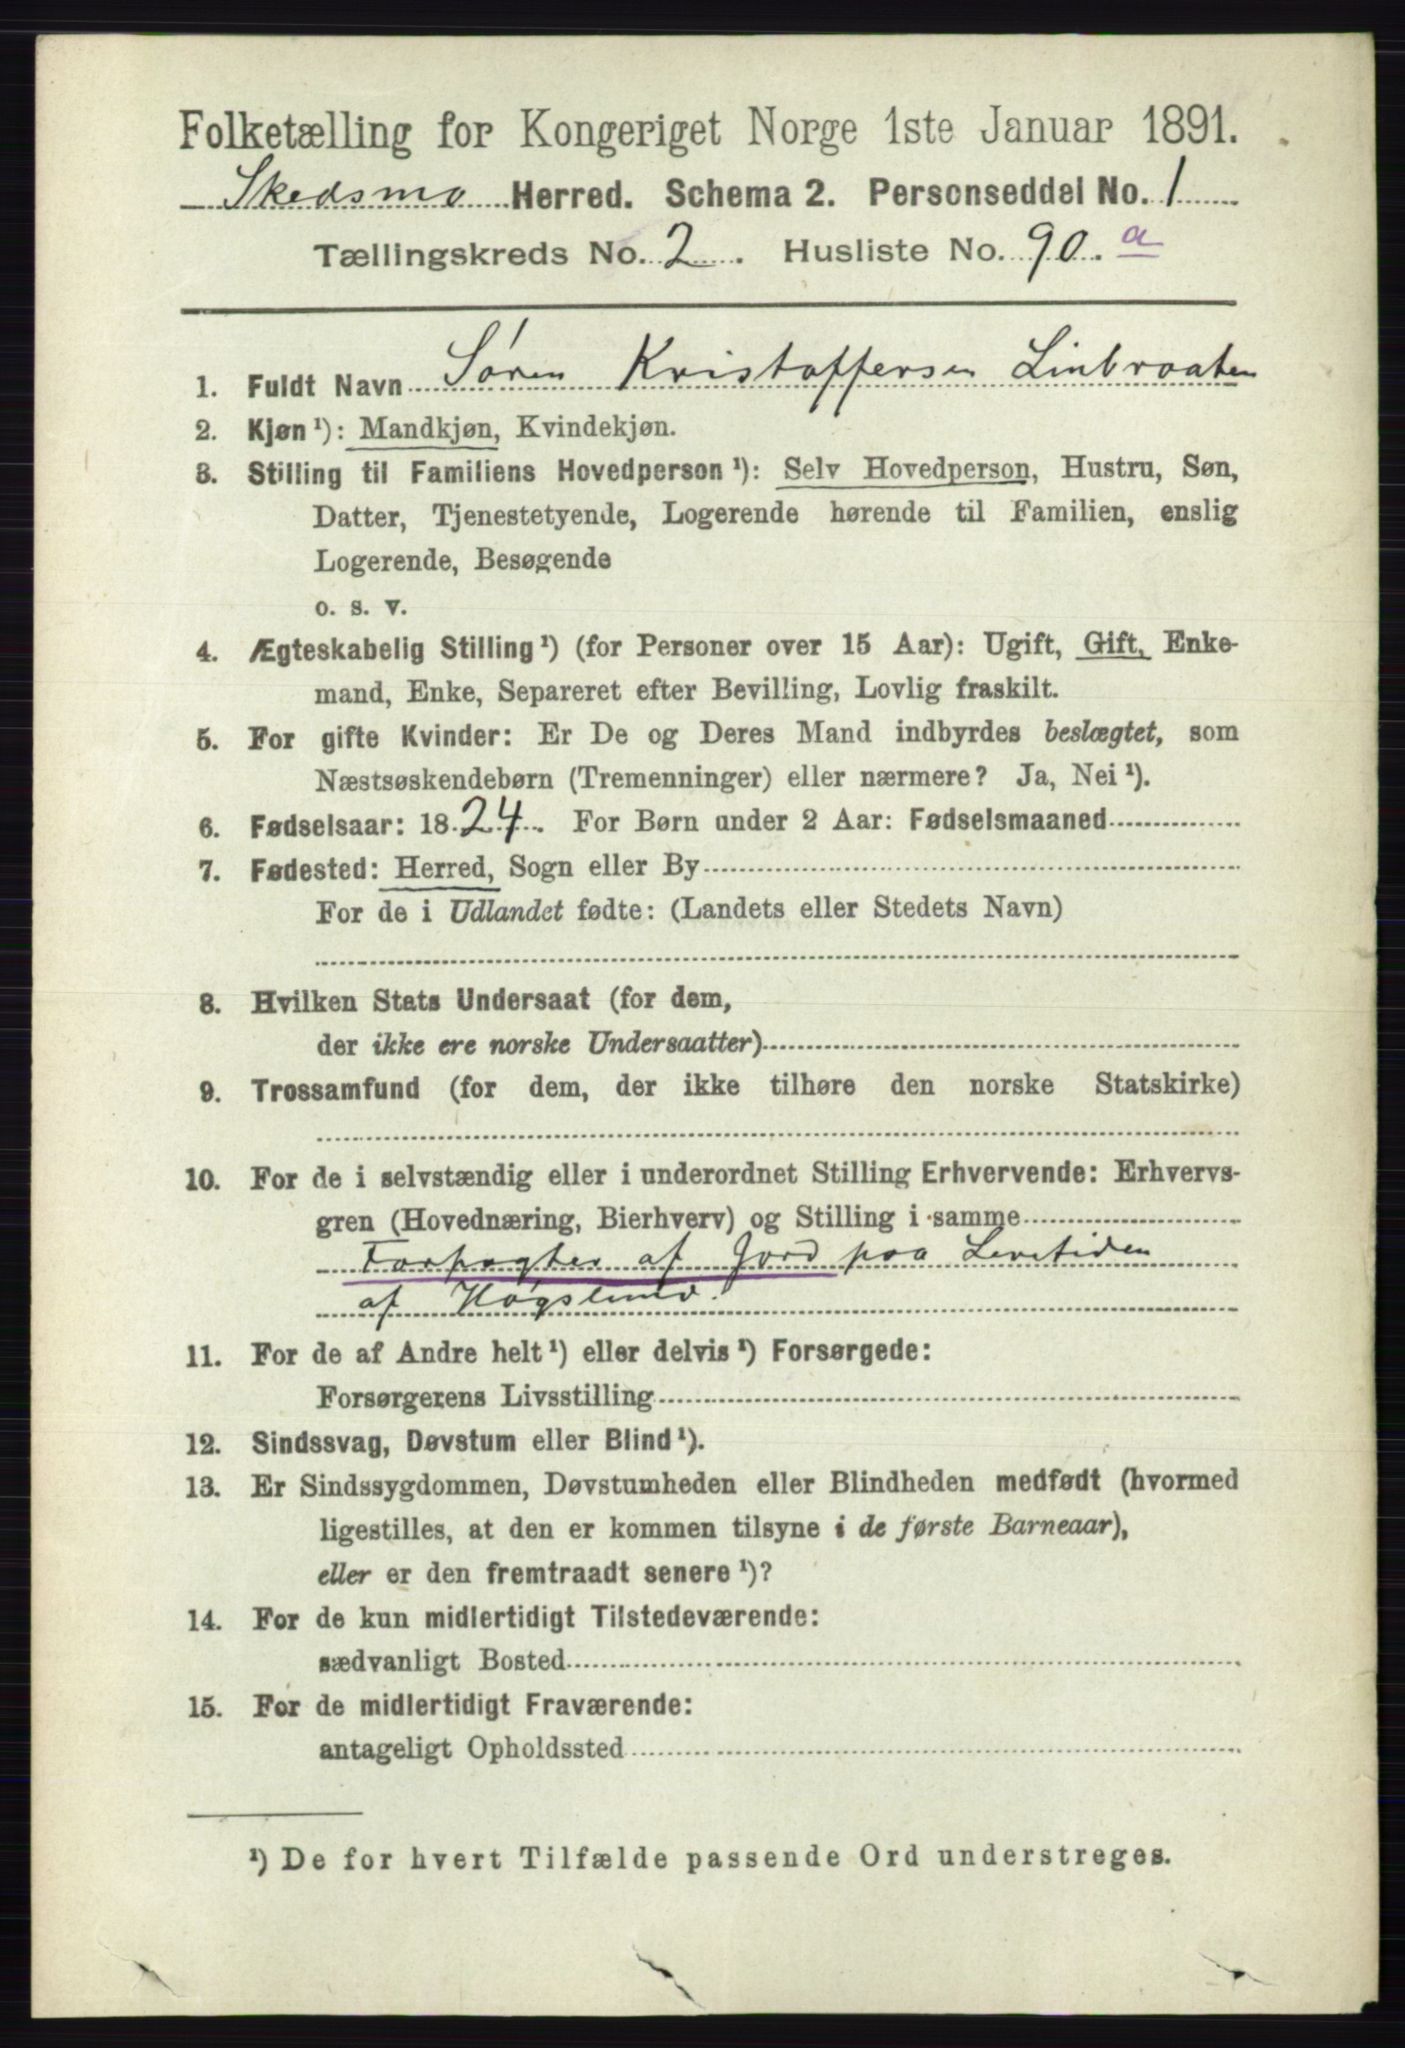 Folketælling for Kongeriget Norge 1ste Januar 1891.
Skedsmo Herred. Schema 2. Personseddel No. 1
Tællingskreds No. 2. Husliste No. 90. a
1. Fuldt Navn Søren Kristoffersen Linbraaten
2. Kjøn ¹): Mandkjøn, Kvindekjøn.
3. Stilling til Familiens Hovedperson ¹): Selv Hovedperson, Hustru, Søn,
Datter, Tjenestetyende, Logerende hørende til Familien, enslig
Logerende, Besøgende
o. s. v.
4. Ægteskabelig Stilling ¹) (for Personer over 15 Aar): Ugift, Gift, Enke-
mand, Enke, Separeret efter Bevilling, Lovlig fraskilt.
5. For gifte Kvinder: Er De og Deres Mand indbyrdes beslægtet, som
Næstsøskendebørn (Tremenninger) eller nærmere? Ja, Nei ¹).
6. Fødselsaar: 1824. For Børn under 2 Aar: Fødselsmaaned
7. Fødested: Herred, Sogn eller By
For de i Udlandet fødte: (Landets eller Stedets Navn)
8. Hvilken Stats Undersaat (for dem,
der ikke ere norske Undersaatter)
9. Trossamfund (for dem, der ikke tilhøre den norske Statskirke)
10. For de i selvstændig eller i underordnet Stilling Erhvervende: Erhvervs-
gren (Hovednæring, Bierhverv) og Stilling i samme
Forpagter af Jord paa Levetiden
af Høgslund.
11. For de af Andre helt ¹) eller delvis ¹) Forsørgede:
Forsørgerens Livsstilling
12. Sindssvag, Døvstum eller Blind ¹).
13. Er Sindssygdommen, Døvstumheden eller Blindheden medfødt (hvormed
ligestilles, at den er kommen tilsyne i de første Barneaar),
eller er den fremtraadt senere ¹)?
14. For de kun midlertidigt Tilstedeværende:
sædvanligt Bosted
15. For de midlertidigt Fraværende:
antageligt Opholdssted
¹) De for hvert Tilfælde passende Ord understreges.